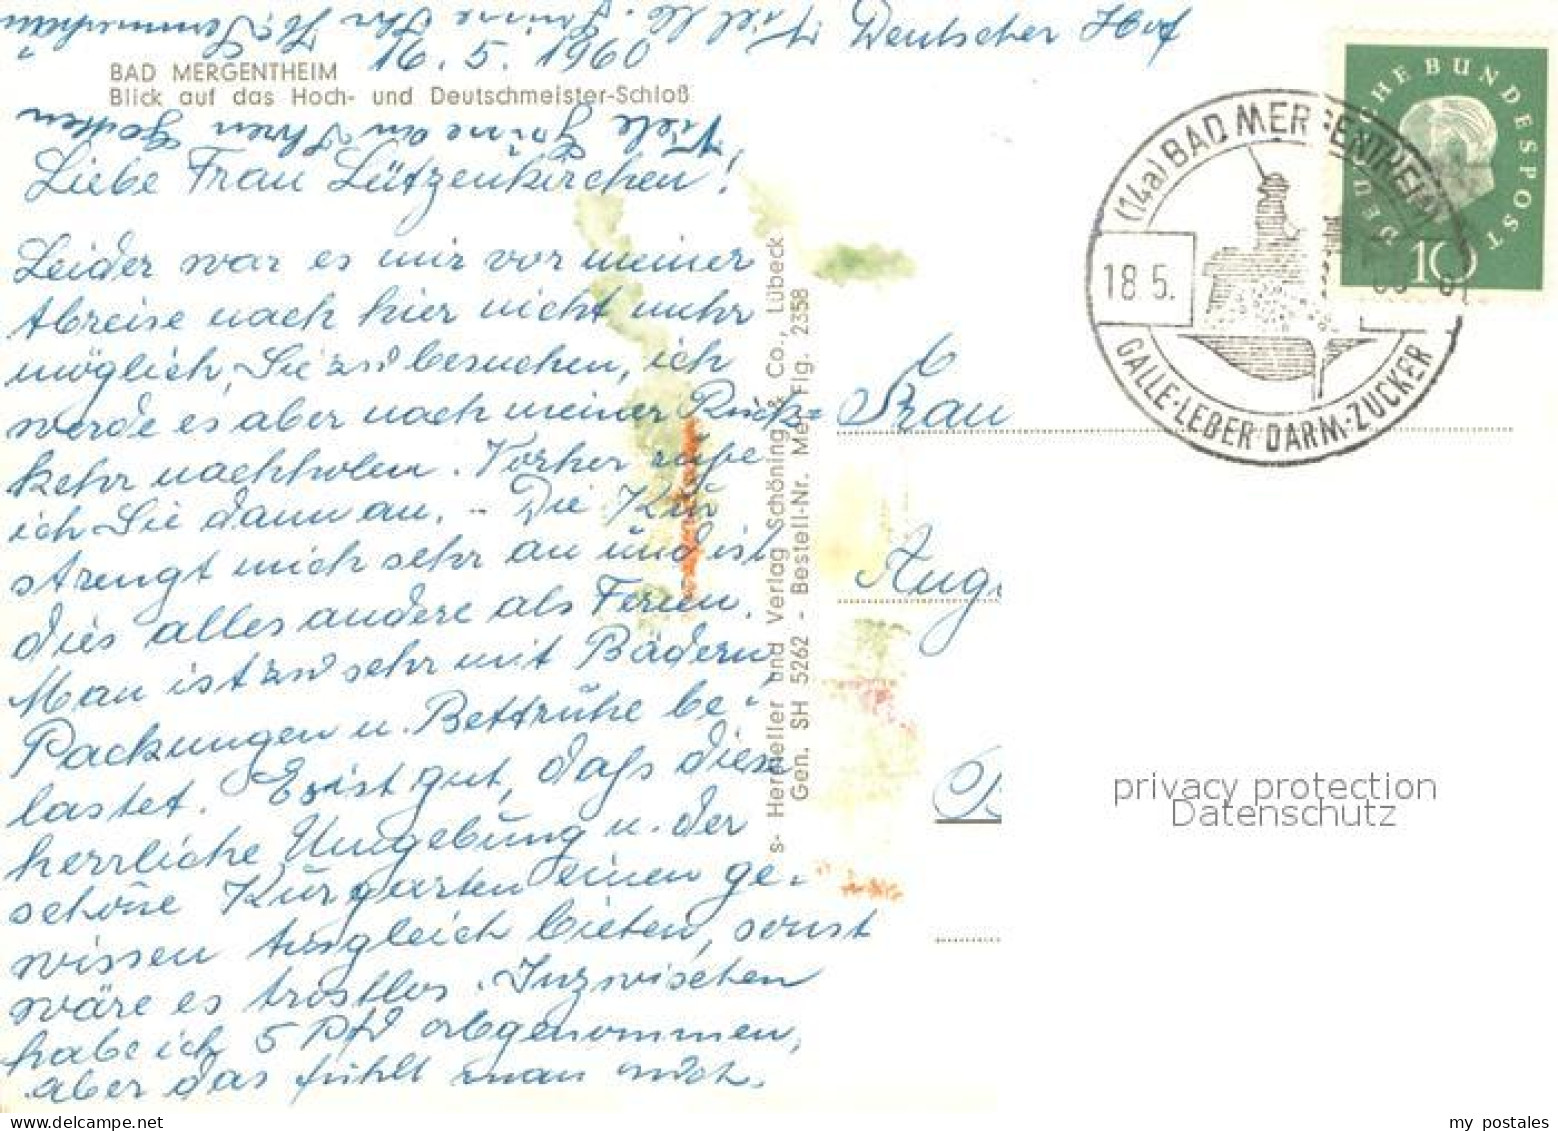 Deutscher Hof
16. 5. 1960
BAD MERGENTHEIM
Blick auf das Hoch- und Deutschmeister-Schloß
Viele Grüße an Ihren Gatten
Liebe Frau Lützenkirchen!
Leider war es mir vor meiner
Abreise nach hier nicht mehr
möglich, Sie zu besuchen, ich
werde es aber nach meiner Rück=
kehr nachholen. Vorher rufe
ich Sie dann an. - Die Kur
strengt mich sehr an und ist
dies alles andere als Ferien.
Man ist zu sehr mit Bädern,
Packungen u. Bettruhe be-
lastet. Es ist gut, daß diese
herrliche Umgebung u. der
schöne Kurgarten einen ge-
wissen Ausgleich bieten, sonst
wäre es trostlos. Inzwischen
habe ich 5 Pfd abgenommen,
aber das fühlt man nicht.
s- Hersteller und Verlag Schöning & Co., Lübeck
Gen. SH 5262 - Bestell-Nr. Mer Flg. 2358
DEUTSCHE BUNDESPOST
10
(14a) BAD MERGENTHEIM
18.5.
GALLE·LEBER·DARM·ZUCKER
Frau
privacy protection
Datenschutz
my postales